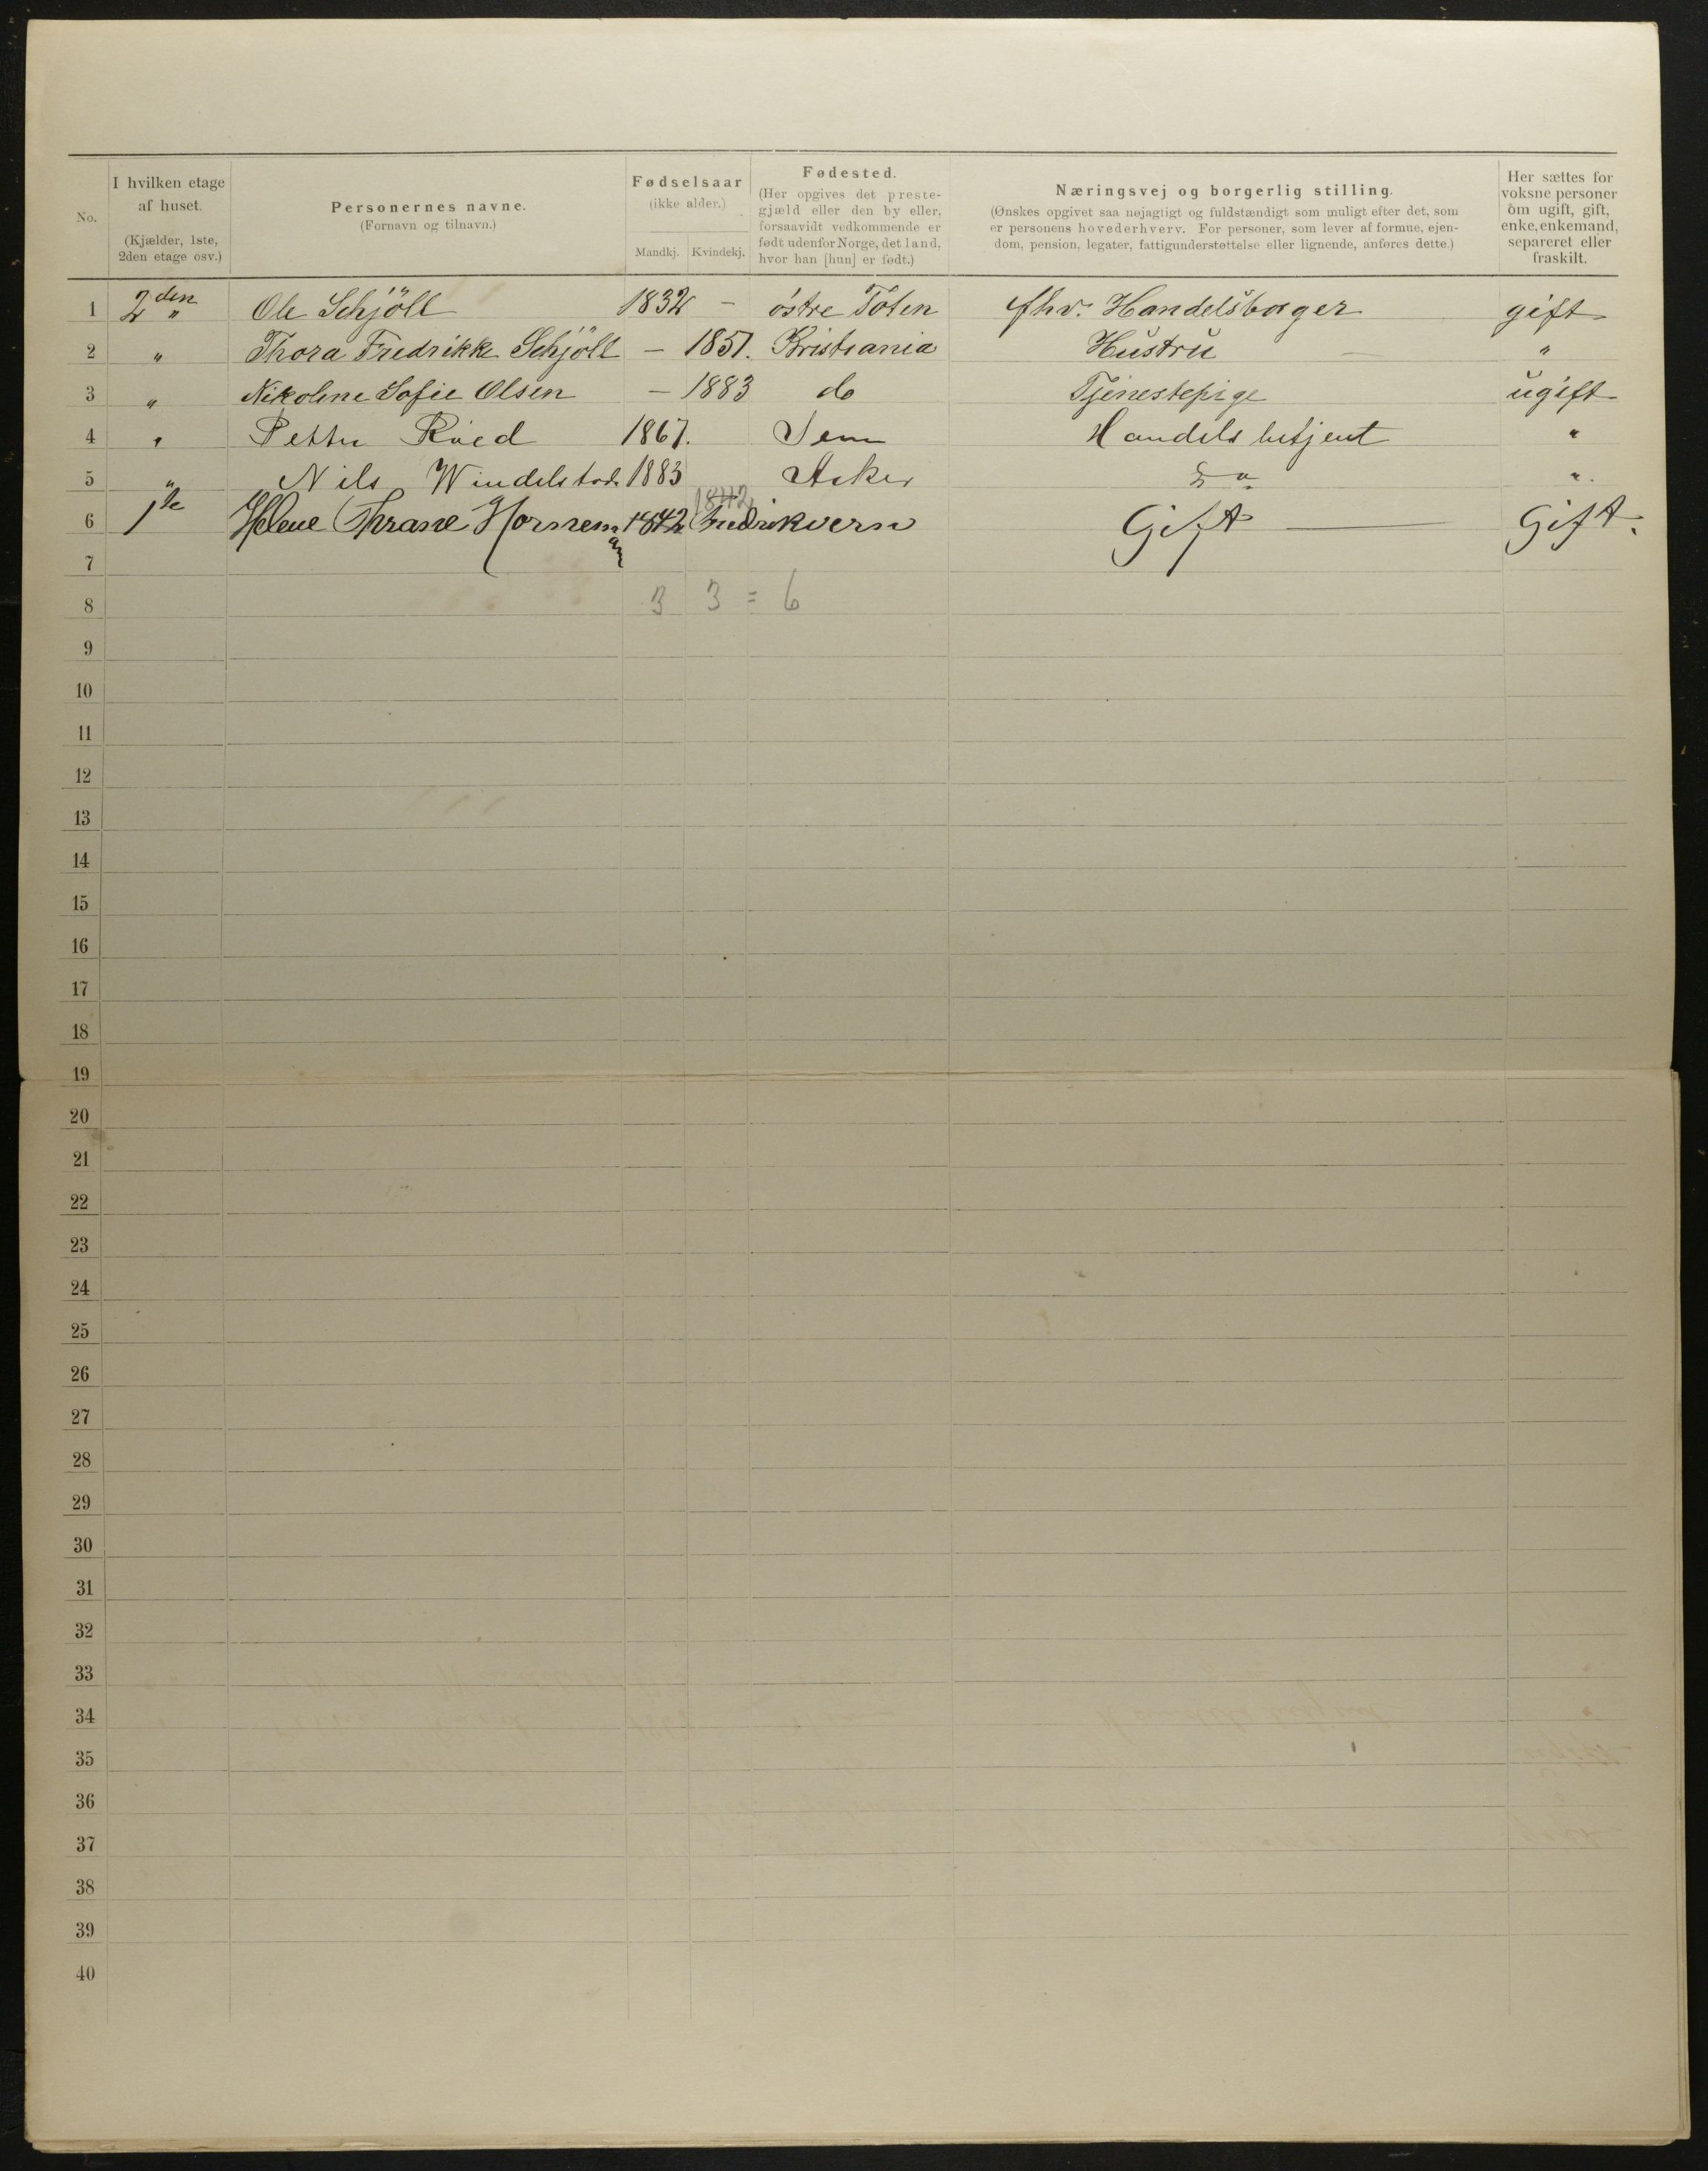 No. | I hvilken etage af huset. (Kjælder, 1ste, 2den etage osv.) | Personernes navne. (Fornavn og tilnavn.) | Fødselsaar (ikke alder.) Mandkj. Kvindekj. | Fødested. (Her opgives det prestegjæld eller den by eller, forsaavidt vedkommende er født udenfor Norge, det land, hvor han [hun] er født.) | Næringsvej og borgerlig stilling. (Ønskes opgivet saa nøjagtigt og fuldstændigt som muligt efter det, som er personens hovederhverv. For personer, som lever af formue, ejendom, pension, legater, fattigunderstøttelse eller lignende, anføres dette.) | Her sættes for voksne personer om ugift, gift, enke, enkemand, separeret eller fraskilt.
1 2den " Ole Schjöll 1832 – östre Toten fhv. Handelsborger gift
2 " Thora Fredrikke Schjöll – 1851. Kristiania Hustru "
3 " Nikoline Sofie Olsen – 1883 do Tjenestepige ugift
4 " Petter Röed 1867. Sem Handelsbetjent "
5 " Nils 1883 Asker Do "
1842
6 1ste Helene Thrane Horneman 1842 Fredriksvern Gift Gift.
7
8 3 3 = 6
9
10
11
12
13
14
15
16
17
18
19
20
21
22
23
24
25
26
27
28
29
30
31
32
33
34
35
36
37
38
39
40